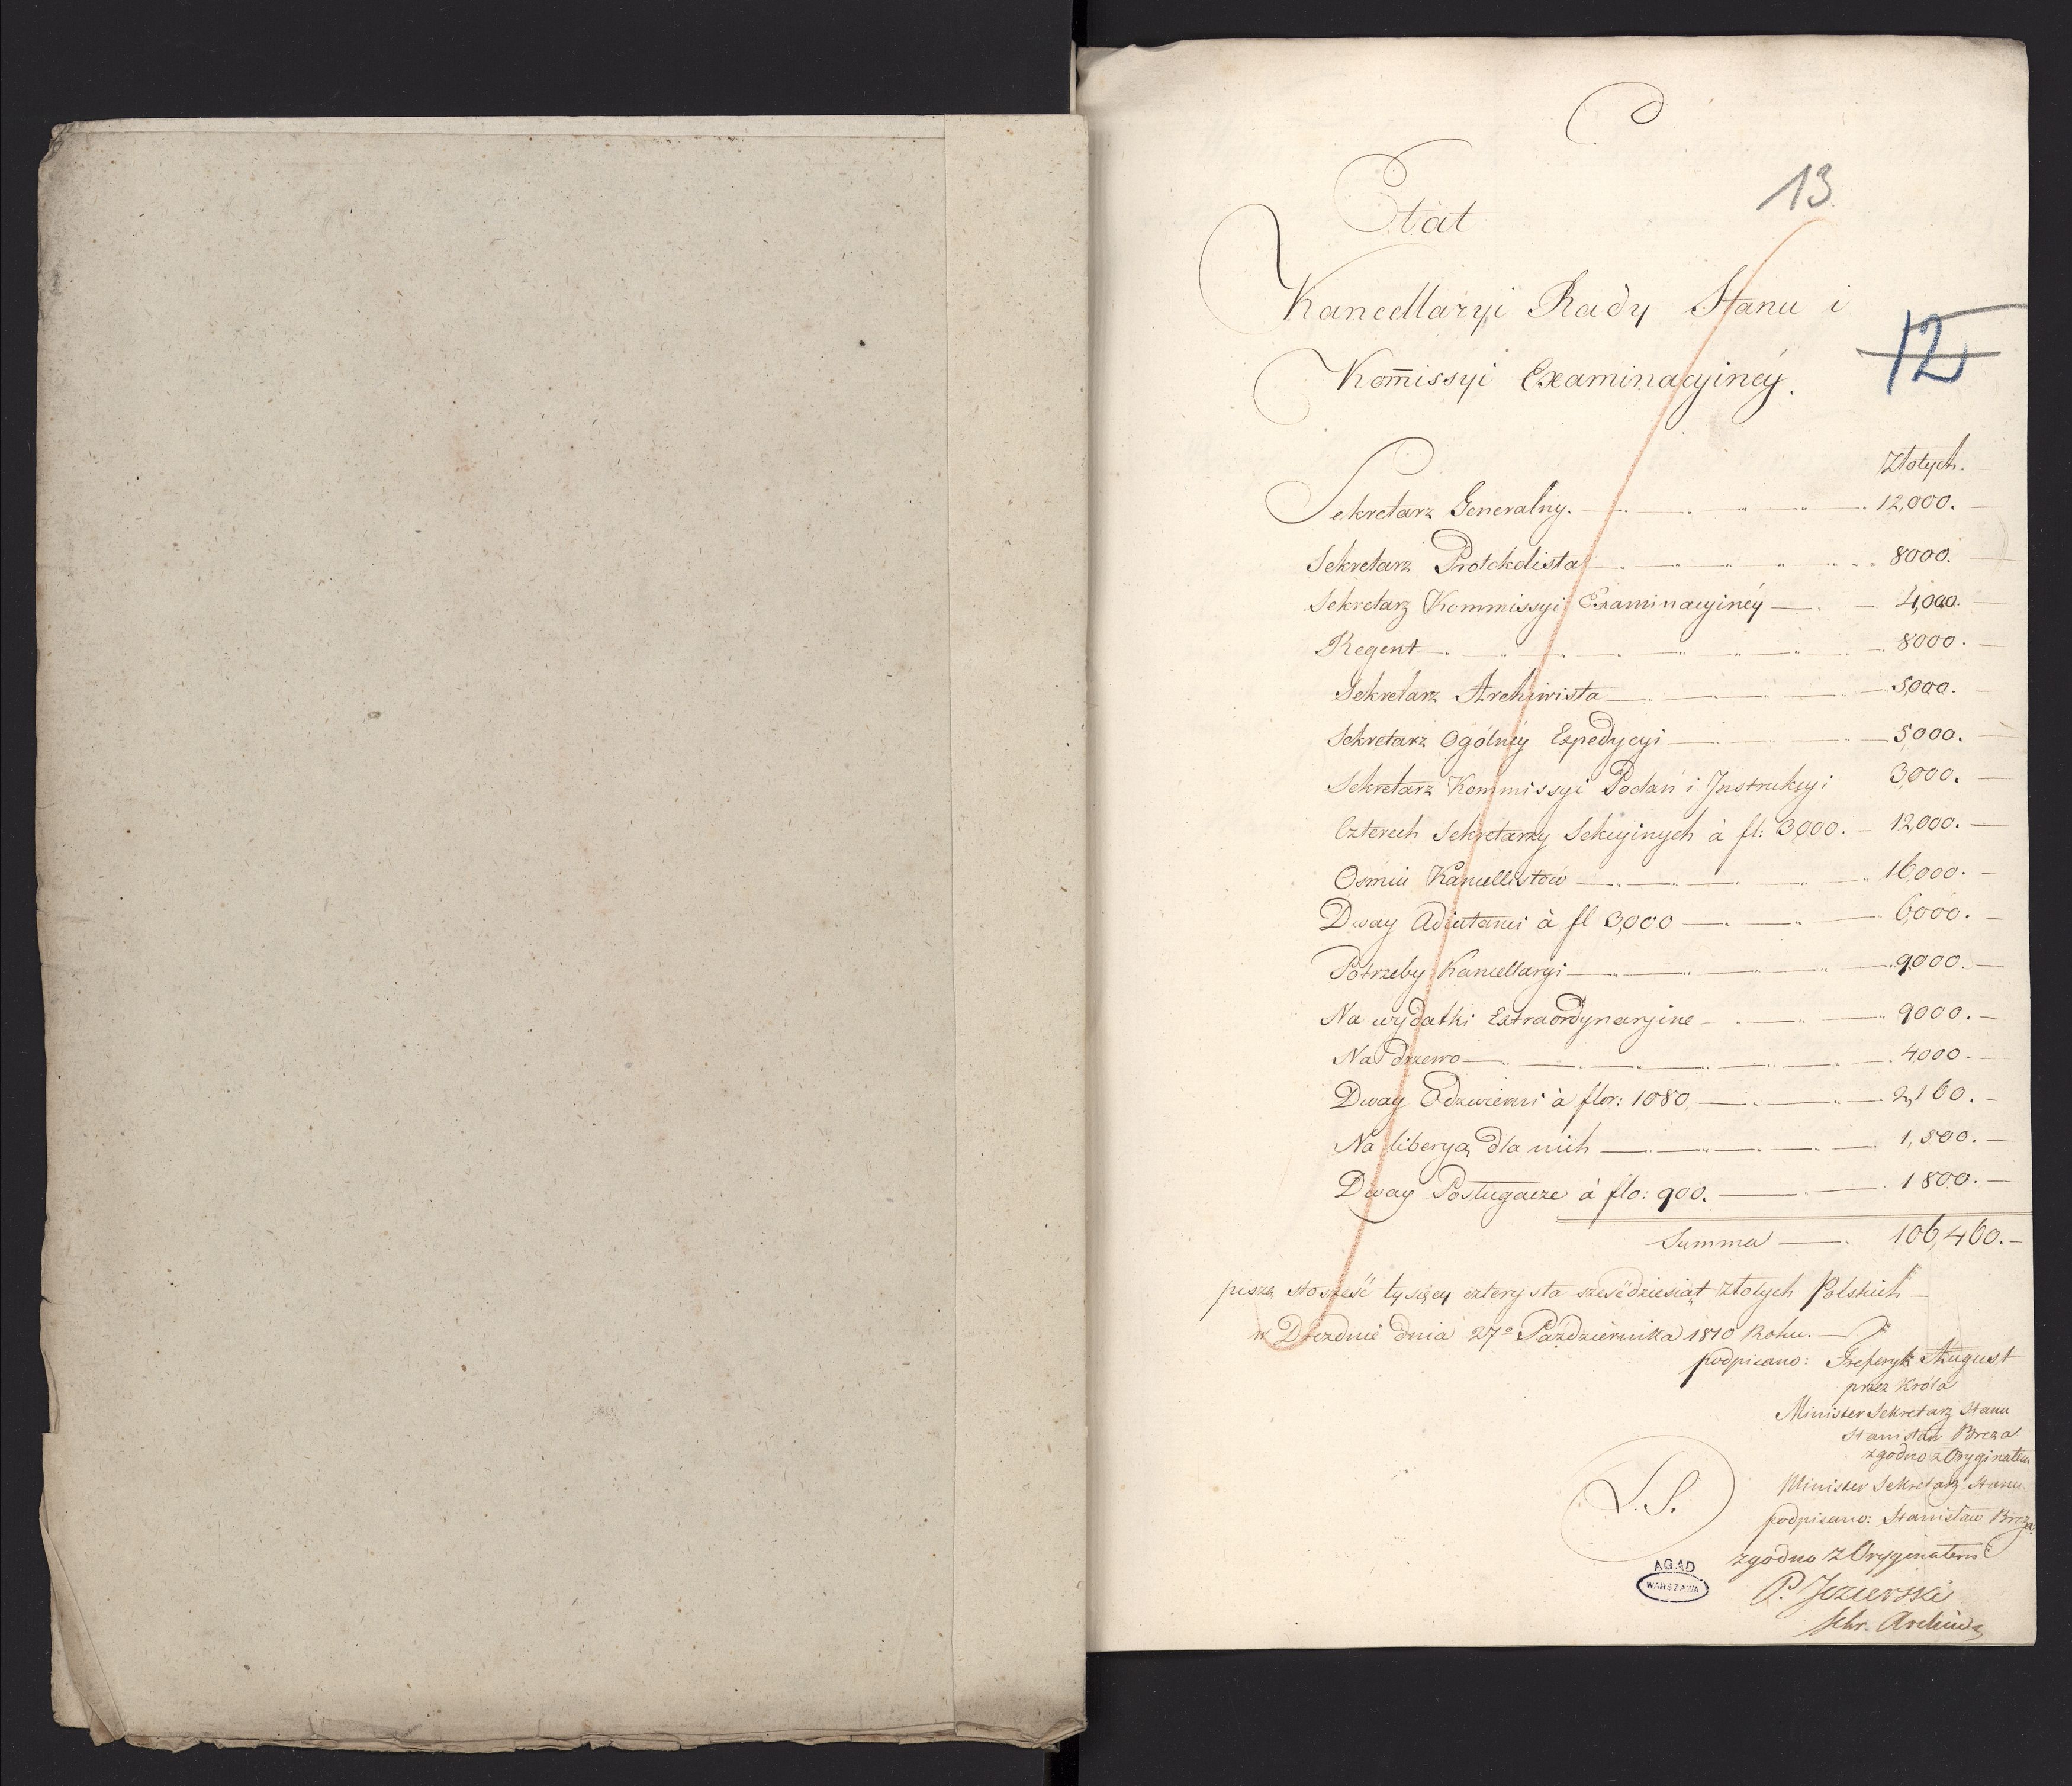 C
13.
Etat
Kancellaryi Rady Stanu i
12
Kom̄issyi Examinacyinéy.
Złotych.
Sekretarz Generalny. 12,000.
Sekretarz Protokolista 8000.
Sekretarz Kommissyi Examinacyinéy 4,000.
Regent 8000.
Sekretarz Archiwista 5,000.
Sekretarz Ogólnéy Expedycyi 5000.
Sekretarz Kommissyi Podań i Instrukcyi 3,000.
Czterech Sekretarzy Sekcyinych à fl: 3,000. 12,000.
Ośmiu Kancellistów 16,000.
Dway Adiutanci à fl 3,000 6,000.
Potrzeby Kancellaryi 9,000.
Na wydatki Extraordynaryine 9000.
Na drzewo 4,000.
Dway Odzwierni à flor: 1080 2,160.
Na liberyą dla nich 1,500.
Dway Posługacze à flo: 900. 1800.
Summa 106,460.
piszę sto sześć tysięcy czterysta sześćdziesiąt Złotych Polskich
w Dreźnie dnia 27º Października 1810 Roku.
podpisano: Frederyk August
przez Króla
Minister Sekretarz Stanu
Stanisław Breza
zgodno z Oryginałem
Minister Sekretarz Stanu
L.S.
podpisano: Stanisław Breza
zgodno z Oryginałem
AGAD
WARSZAWA
P. Jezierski
Sekr. Archiwa